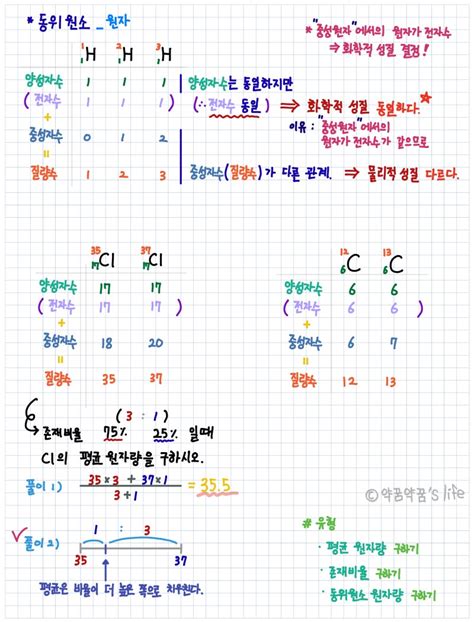 * 동위원소 _ 원자
* "중성원자"에서의 원자가 전자수
⇒ 화학적 성질 결정!
¹₁H ²₁H ³₁H
양성자수 1 1 1 양성자수는 동일하지만
( 전자수 1 1 1 ) (∴ 전자수 동일) ⇒ 화학적 성질 동일하다.
+ 이유 : "중성원자"에서의
중성자수 0 1 2 원자가 전자수가 같으므로
=
질량수 1 2 3 중성자수(질량수)가 다른 관계. ⇒ 물리적 성질 다르다.
³⁵₁₇Cl ³⁷₁₇Cl
양성자수 17 17
( 전자수 17 17 )
+
중성자수 18 20
=
질량수 35 37
¹²₆C ¹³₆C
양성자수 6 6
( 전자수 6 6 )
+
중성자수 6 7
=
질량수 12 13
( 3 : 1 )
존재비율 75% 25% 일때
Cl의 평균 원자량을 구하시오.
풀이 1) 35×3 + 37×1 = 35.5
3+1
ⓒ약꿈약꿈's life
풀이 2) 1 : 3
35 37
평균은 비율이 더 높은 쪽으로 치우친다.
# 유형
· 평균 원자량 구하기
· 존재비율 구하기
· 동위원소 원자량 구하기